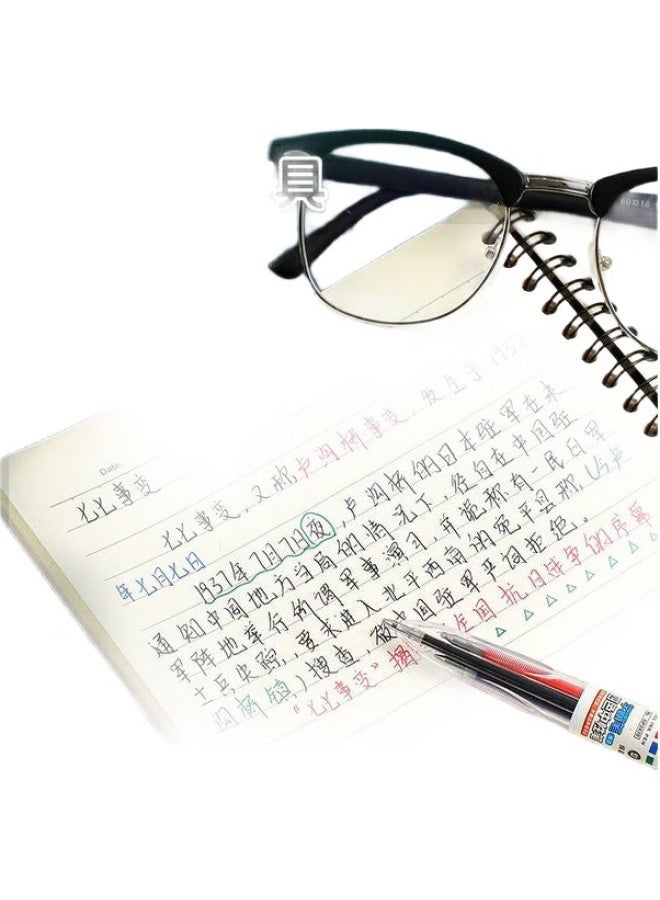 Date.
七七事变
七七事变,又称卢沟桥事变,发生于1937
年七月七日
1937年7月7日夜,卢沟桥的日本驻军在未
通知中国地方当局的情况下,径自在中国驻
军阵地举行所谓军事演习,并诡称有一民日军
士兵失踪,要求进入北平西南的宛平县称(今卢
沟桥镇)搜查,被中国驻军严词拒绝。
"七七事变"揭 全国抗日战争的序幕